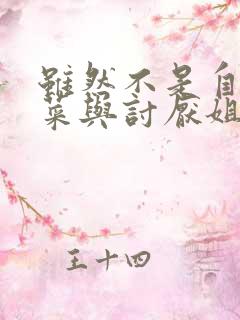 雖然不是自
菜與討厭姐
王十四